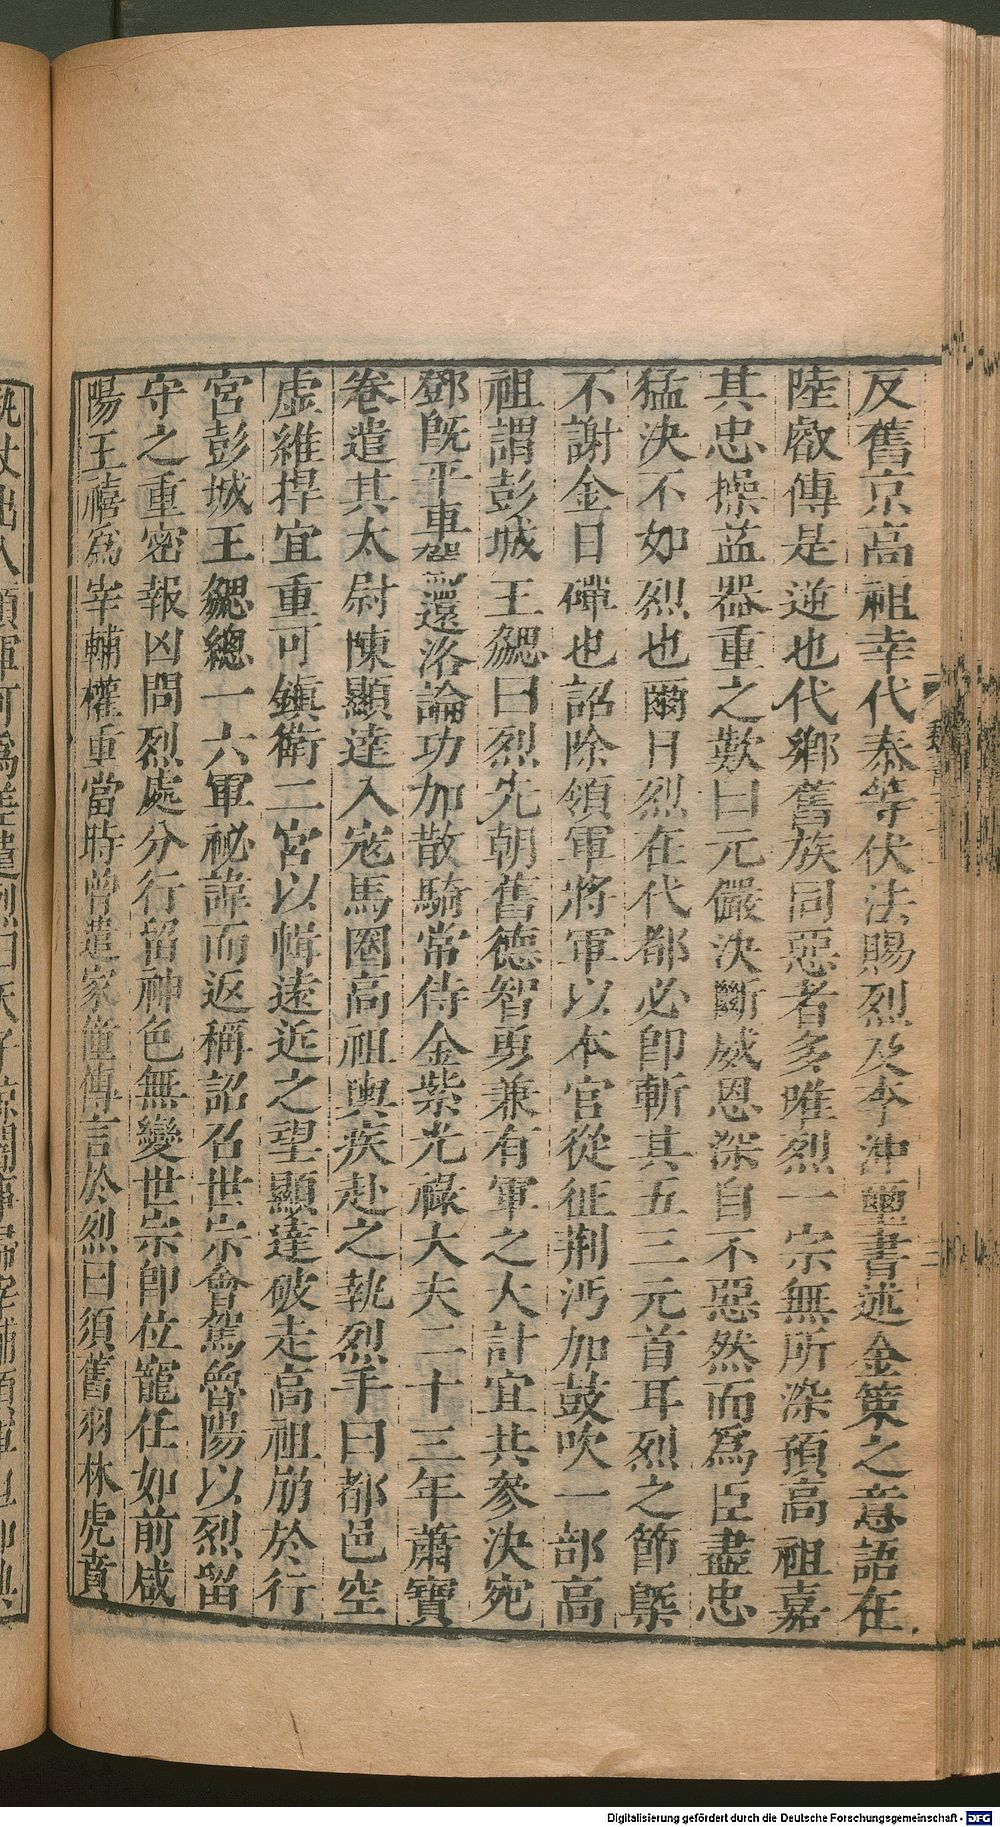 反舊京高祖幸代泰等伏法賜烈及李沖璽書述金策之意語在
陸叡傳是逆也代鄉舊族同惡者多唯烈一宗無所染預高祖嘉
其忠操益器重之歎曰元儼決斷威恩深自不惡然而爲臣盡忠
猛決不如烈也爾日烈在代都必卽斬其五三元首耳烈之節槩
不謝金日磾也詔除領軍將軍以本官從征荆沔加鼓吹一部高
祖謂彭城王勰曰烈先朝舊德智勇兼有軍之大計宜共參決宛
鄧旣平車駕還洛論功加散騎常侍金紫光祿大夫二十三年蕭寶
卷遣其太尉陳顯達入宼馬圈高祖輿疾赴之執烈手曰都邑空
虛維捍宜重可鎭衛二宮以輯遠近之望顯達破走高祖崩於行
宮彭城王勰總一六軍祕諱而返稱詔召世宗會駕魯陽以烈留
守之重密報凶問烈處分行留神色無變世宗卽位寵任如前咸
陽王禧爲宰輔權重當時曾遣家僮傳言於烈曰須舊羽林虎賁
Digitalisierung gefördert durch die Deutsche Forschungsgemeinschaft - DFG